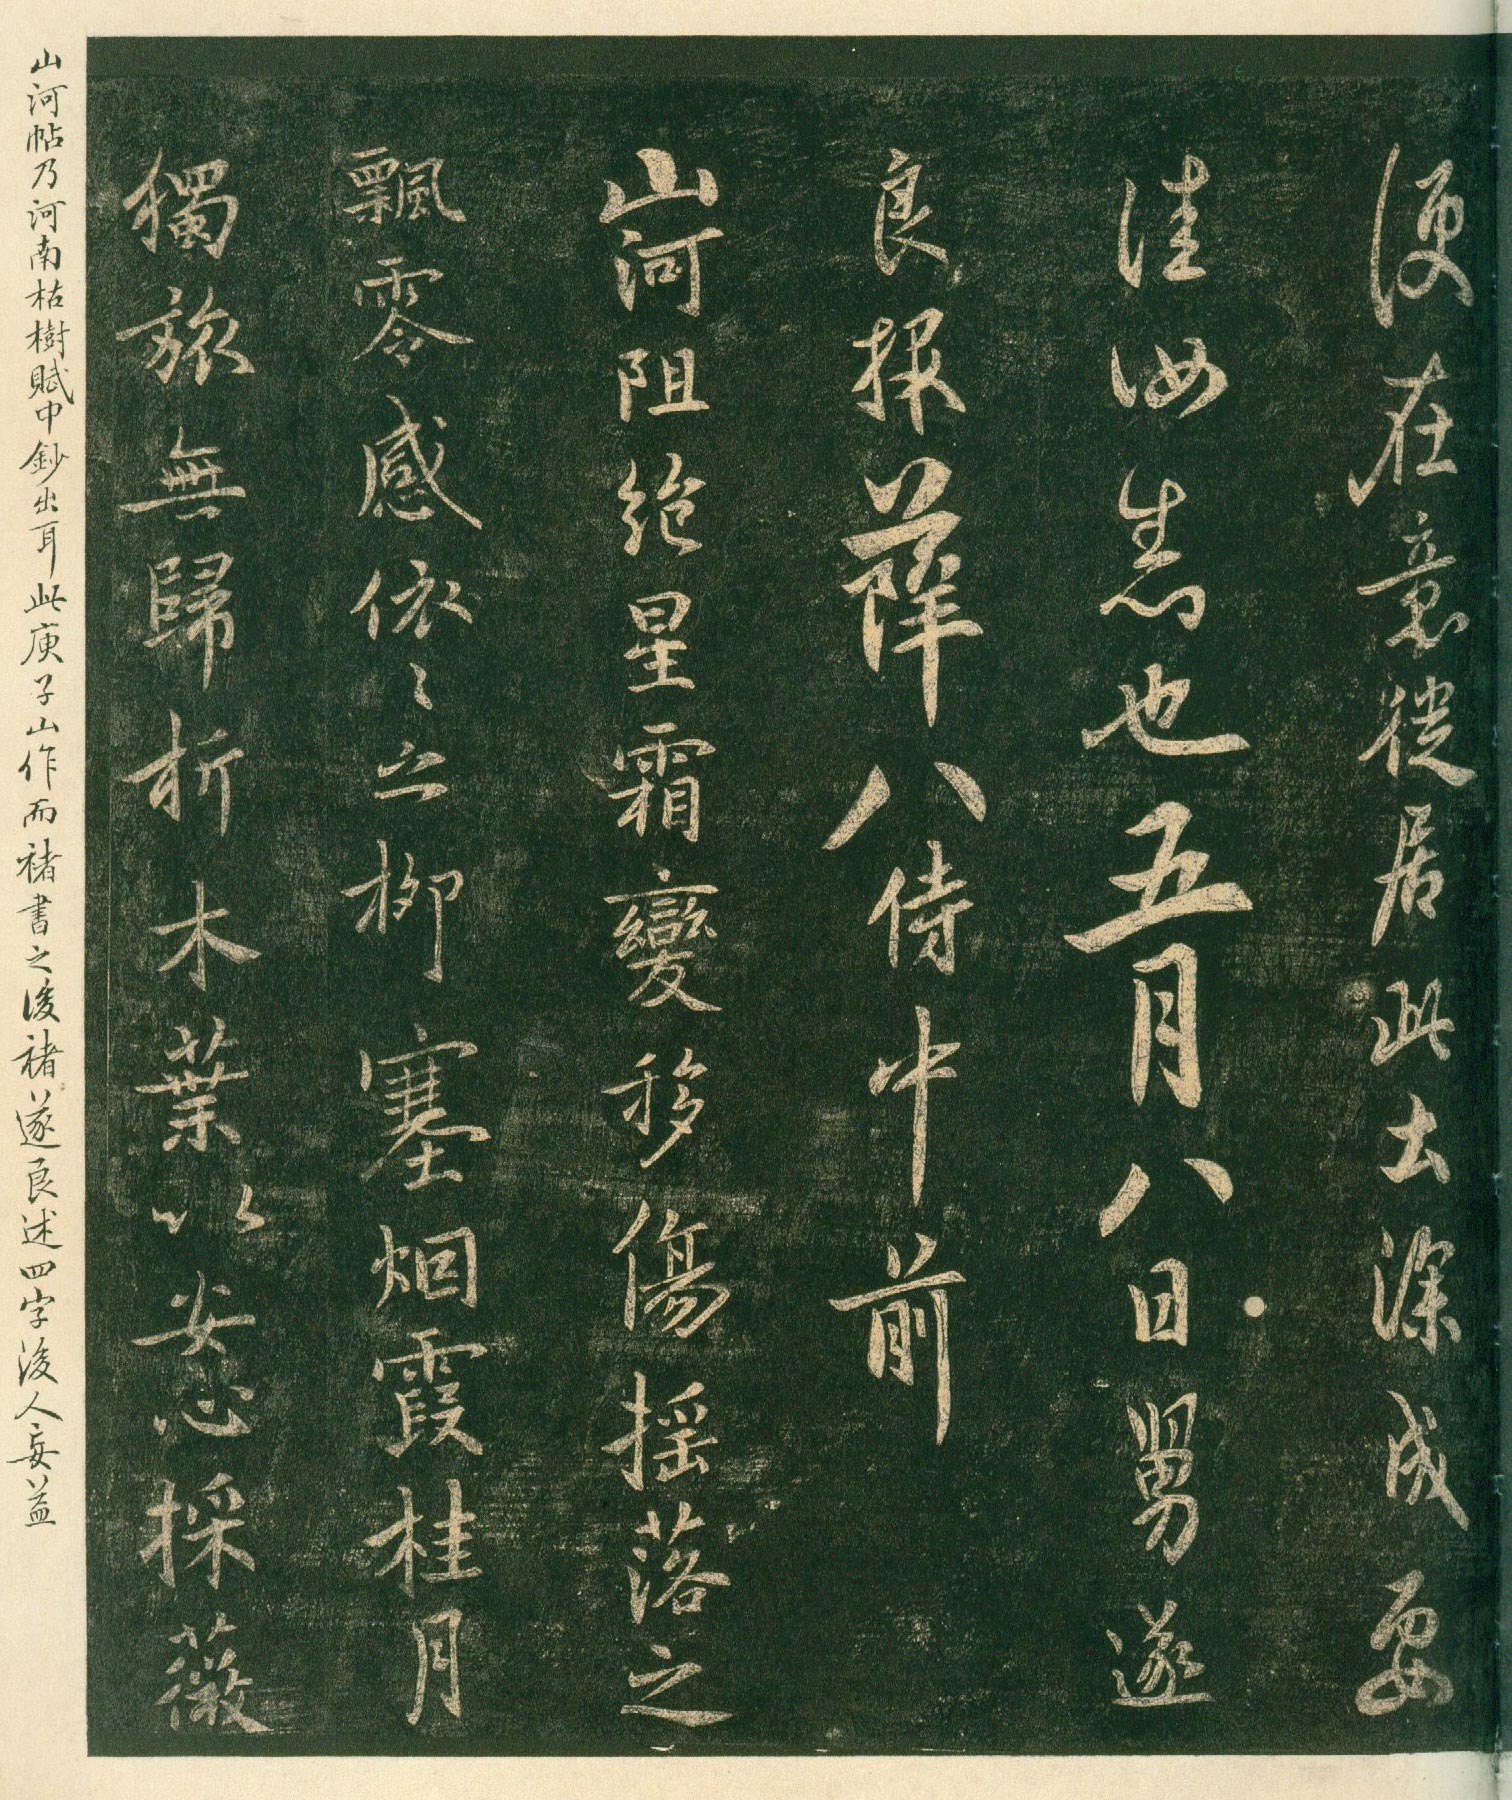 便在意從居此出深成要
佳汝悉也五月八日舅遂
良報薛八侍中前
山河阻絕星霜變移傷摇落之
飄零感依〻之柳塞烟霞桂月
獨旅無歸折木葉以安心採薇
山河帖乃河南枯樹賦中鈔出耳此庾子山作而褚書之後褚遂良述四字後人妄益